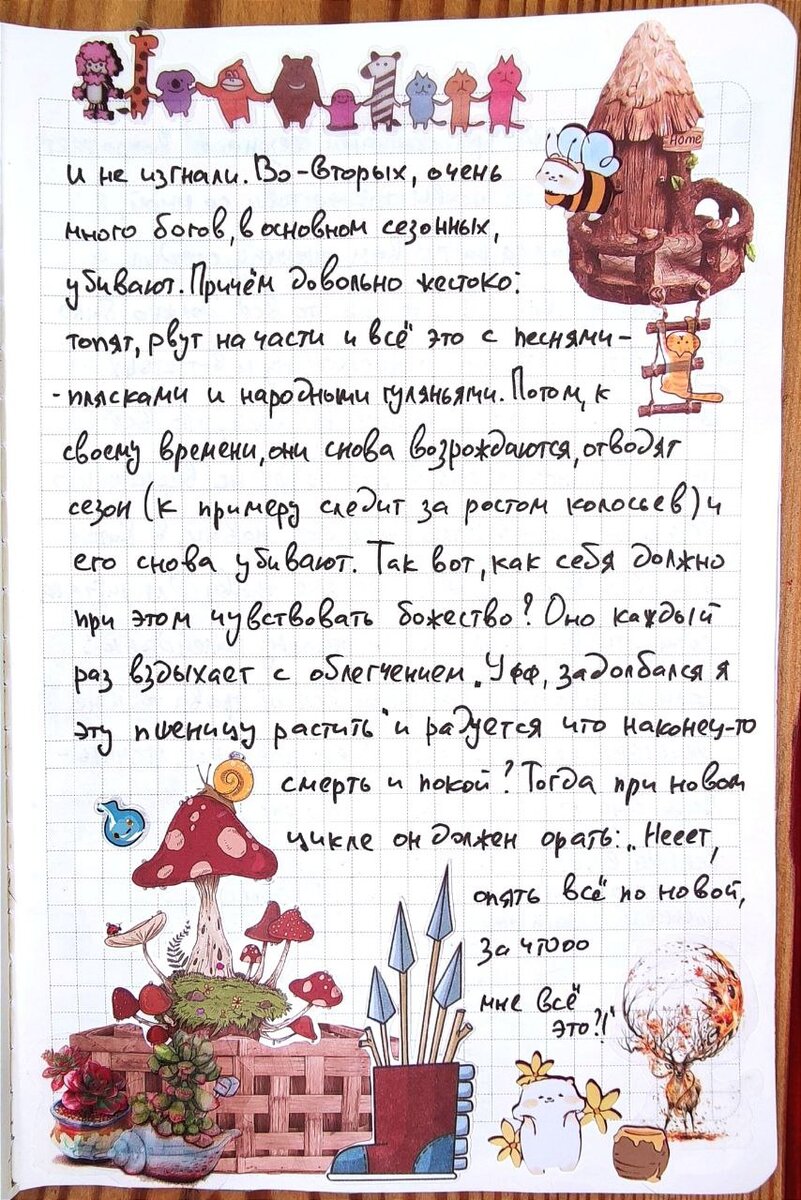 Home
и не изгнали. Во-вторых, очень
много богов, в основном сезонных,
убивают. Причём довольно жестоко:
топят, рвут на части и всё это с песнями-
-плясками и народными гуляньями. Потом, к
своему времени, они снова возрождаются, отводят
сезон (к примеру следит за ростом колосьев) и
его снова убивают. Так вот, как себя должно
при этом чувствовать божество? Оно каждый
раз вздыхает с облегчением „Уфф, задолбался я
эту пшеницу растить" и радуется что наконец-то
смерть и покой? Тогда при новом
цикле он должен орать: „Нееет,
опять всё по новой,
за чтооо
мне всё
это?!"